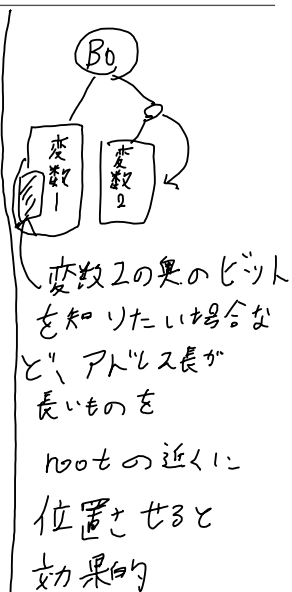 B0
変数1
変数2
変数1の奥のビット
を知りたい場合な
ど、アドレス長が
長いものを
rootの近くに
位置させると
効果的